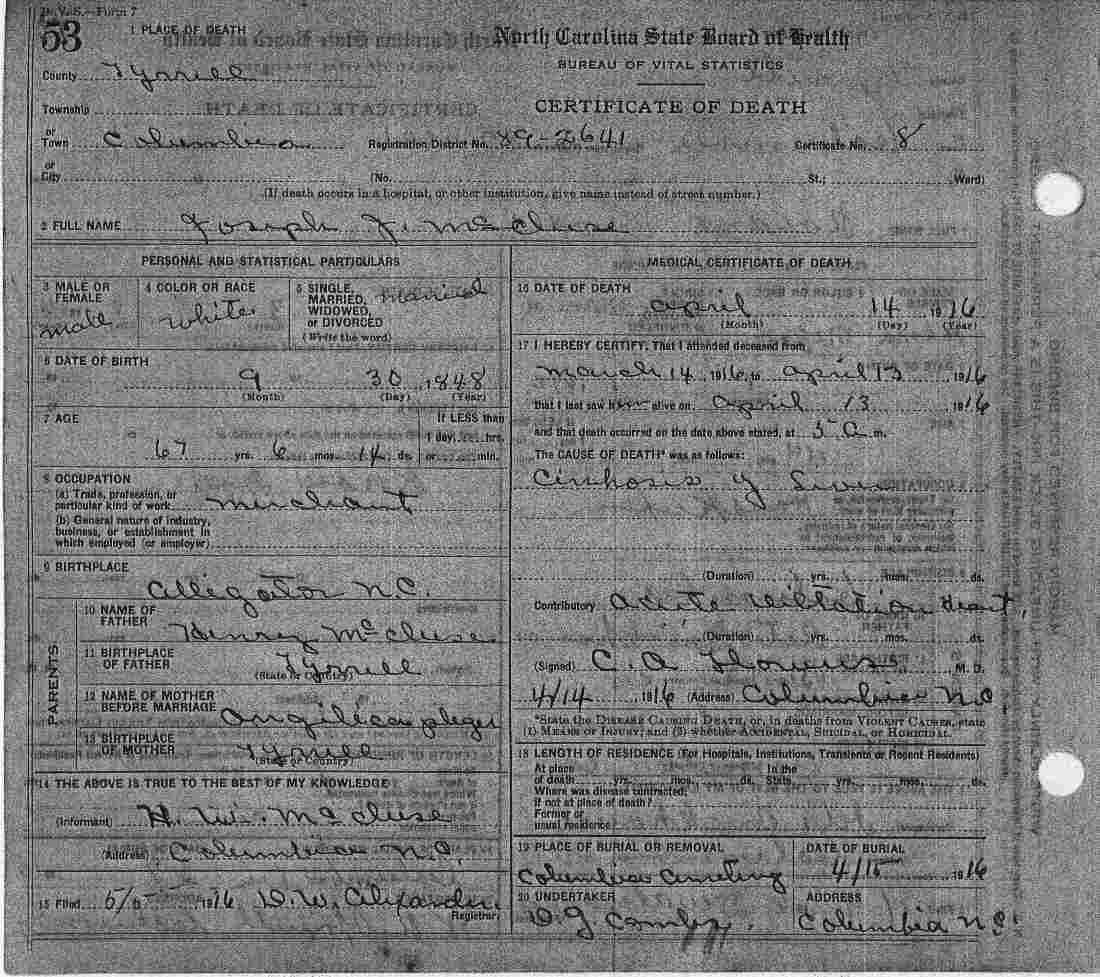 B. V. S.—Form 7
53
1 PLACE OF DEATH
North Carolina State Board of Health
BUREAU OF VITAL STATISTICS
CERTIFICATE OF DEATH
County Tyrrell
Township
or Town Columbia Registration District No. 89-2641 Certificate No. 8
or City (No. St.; Ward)
(If death occurs in a hospital, or other institution, give name instead of street number.)
2 FULL NAME Joseph J. McCluse
PERSONAL AND STATISTICAL PARTICULARS
3 MALE OR FEMALE male
4 COLOR OR RACE white
5 SINGLE, MARRIED, WIDOWED, or DIVORCED (Write the word) married
6 DATE OF BIRTH
9 30 1848
(Month) (Day) (Year)
7 AGE
If LESS than 1 day, hrs. or min.
67 yrs. 6 mos. 14 ds.
8 OCCUPATION
(a) Trade, profession, or particular kind of work merchant
(b) General nature of industry, business, or establishment in which employed (or employer)
9 BIRTHPLACE
Alligator N.C.
PARENTS
10 NAME OF FATHER Henry McCluse
11 BIRTHPLACE OF FATHER Tyrrell
(State or Country)
12 NAME OF MOTHER BEFORE MARRIAGE
13 BIRTHPLACE OF MOTHER Tyrrell
(State or Country)
14 THE ABOVE IS TRUE TO THE BEST OF MY KNOWLEDGE
(Informant) H. W. McCluse
(Address) Columbia N.C.
15 Filed 1916 D. W. Alexander
Registrar.
MEDICAL CERTIFICATE OF DEATH
16 DATE OF DEATH
April 14 1916
(Month) (Day) (Year)
17 I HEREBY CERTIFY, That I attended deceased from
March 14, 1916, to April 13 1916
that I last saw him alive on April 13 1916
and that death occurred on the date above stated, at 5 a m.
The CAUSE OF DEATH* was as follows:
Cirrhosis of Liver
(Duration) yrs. mos. ds.
Contributory Acute Dilitation Heart,
(Duration) yrs. mos. ds.
(Signed) C. A. Flowers M. D.
4/14 1916 (Address) Columbia N.C
*State the DISEASE CAUSING DEATH, or, in deaths from VIOLENT CAUSES, state
(1) MEANS OF INJURY; and (2) whether ACCIDENTAL, SUICIDAL, or HOMICIDAL.
18 LENGTH OF RESIDENCE (For Hospitals, Institutions, Transients or Recent Residents)
At place of death yrs. mos. ds. In the State yrs. mos. ds.
Where was disease contracted,
if not at place of death?
Former or
usual residence
19 PLACE OF BURIAL OR REMOVAL
Columbia Cemetery
DATE OF BURIAL
4/15 1916
20 UNDERTAKER
ADDRESS
Columbia N.C.